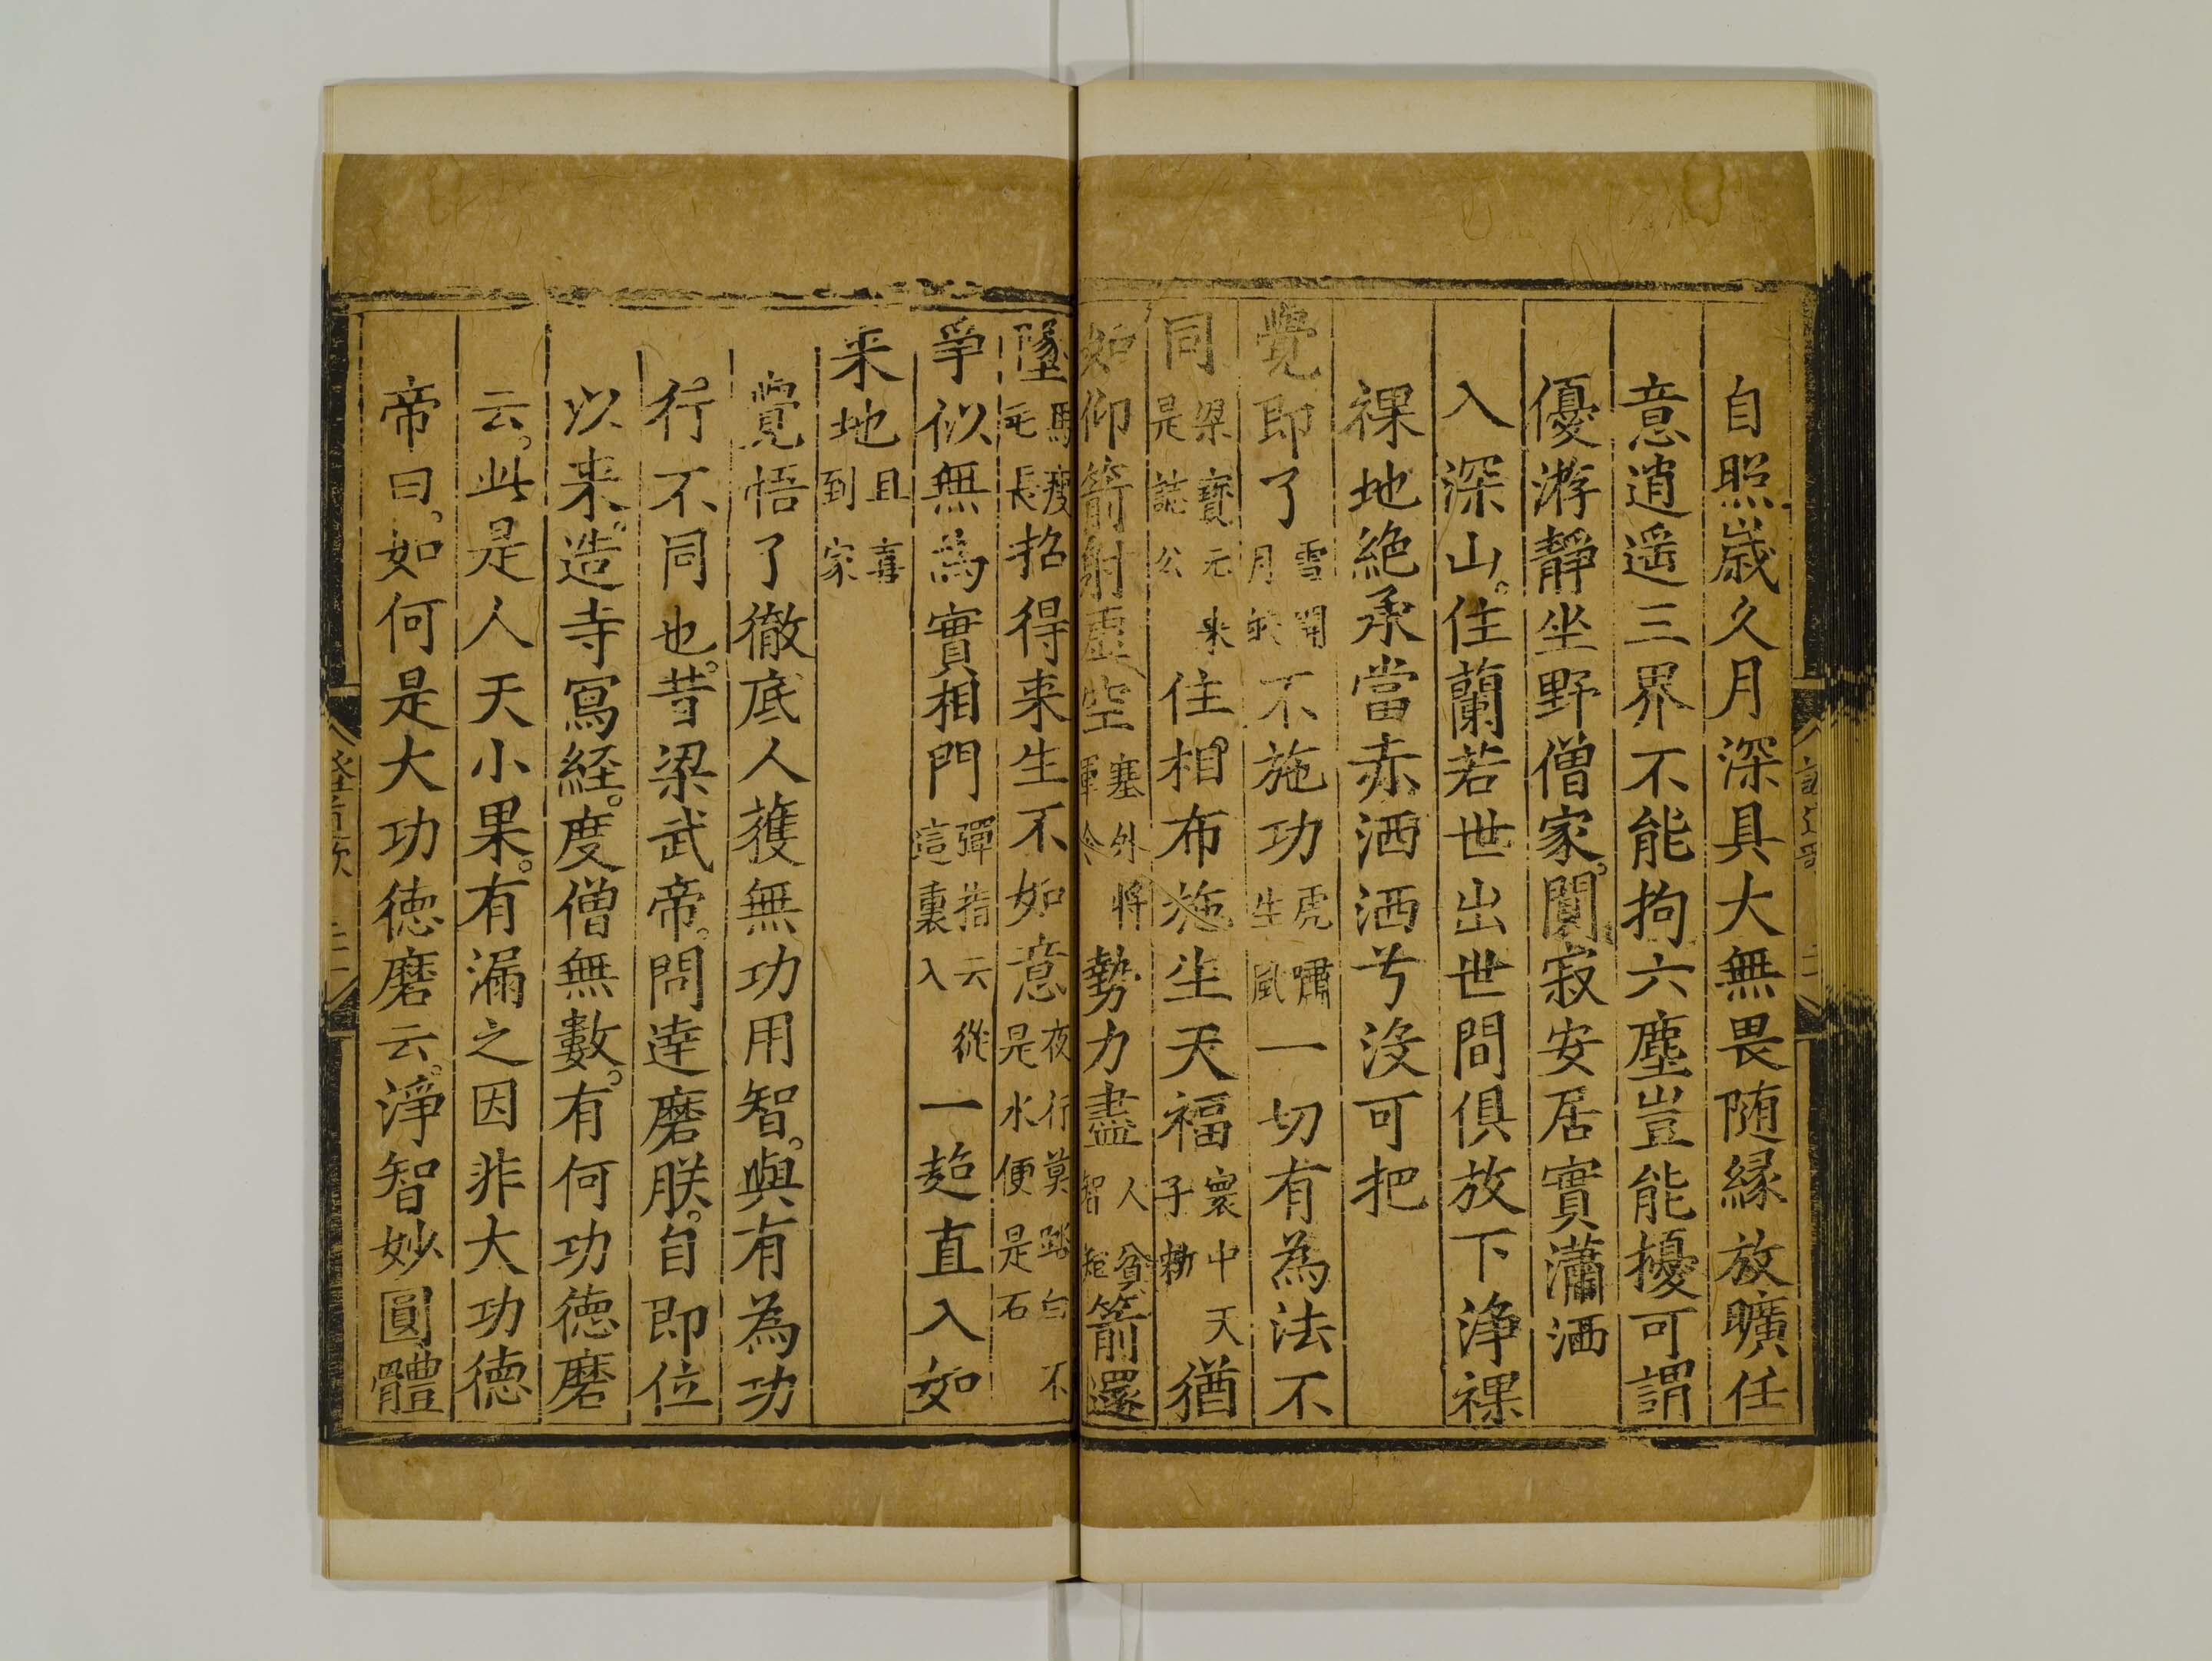 自照歲久月深具大無畏随縁放曠任
意逍遥三界不能拘六塵豈能擾可謂
優游靜坐野僧家。闃寂安居實瀟洒
入深山。住蘭若世出世間俱放下淨裸
裸地絶承當赤洒洒兮没可把
覺即了雪開月皎不施功虎嘯生風一切有為法不
同梁寶元来是誌公住相布施生天福寰中天子勅猶
如仰箭射虛空塞外將軍令勢力盡人貧智短箭還
墜馬瘦毛長招得来生不如意夜行莫踏白不是水便是石
爭似無為實相門彈指云從這裏入一超直入如
来地且喜到家
覺悟了徹底人獲無功用智。與有為功
行不同也。昔梁武帝。問達磨朕。自即位
以来。造寺寫経。度僧無數。有何功徳磨
云。此是人天小果。有漏之因非大功徳
帝曰。如何是大功徳磨云。淨智妙圓體